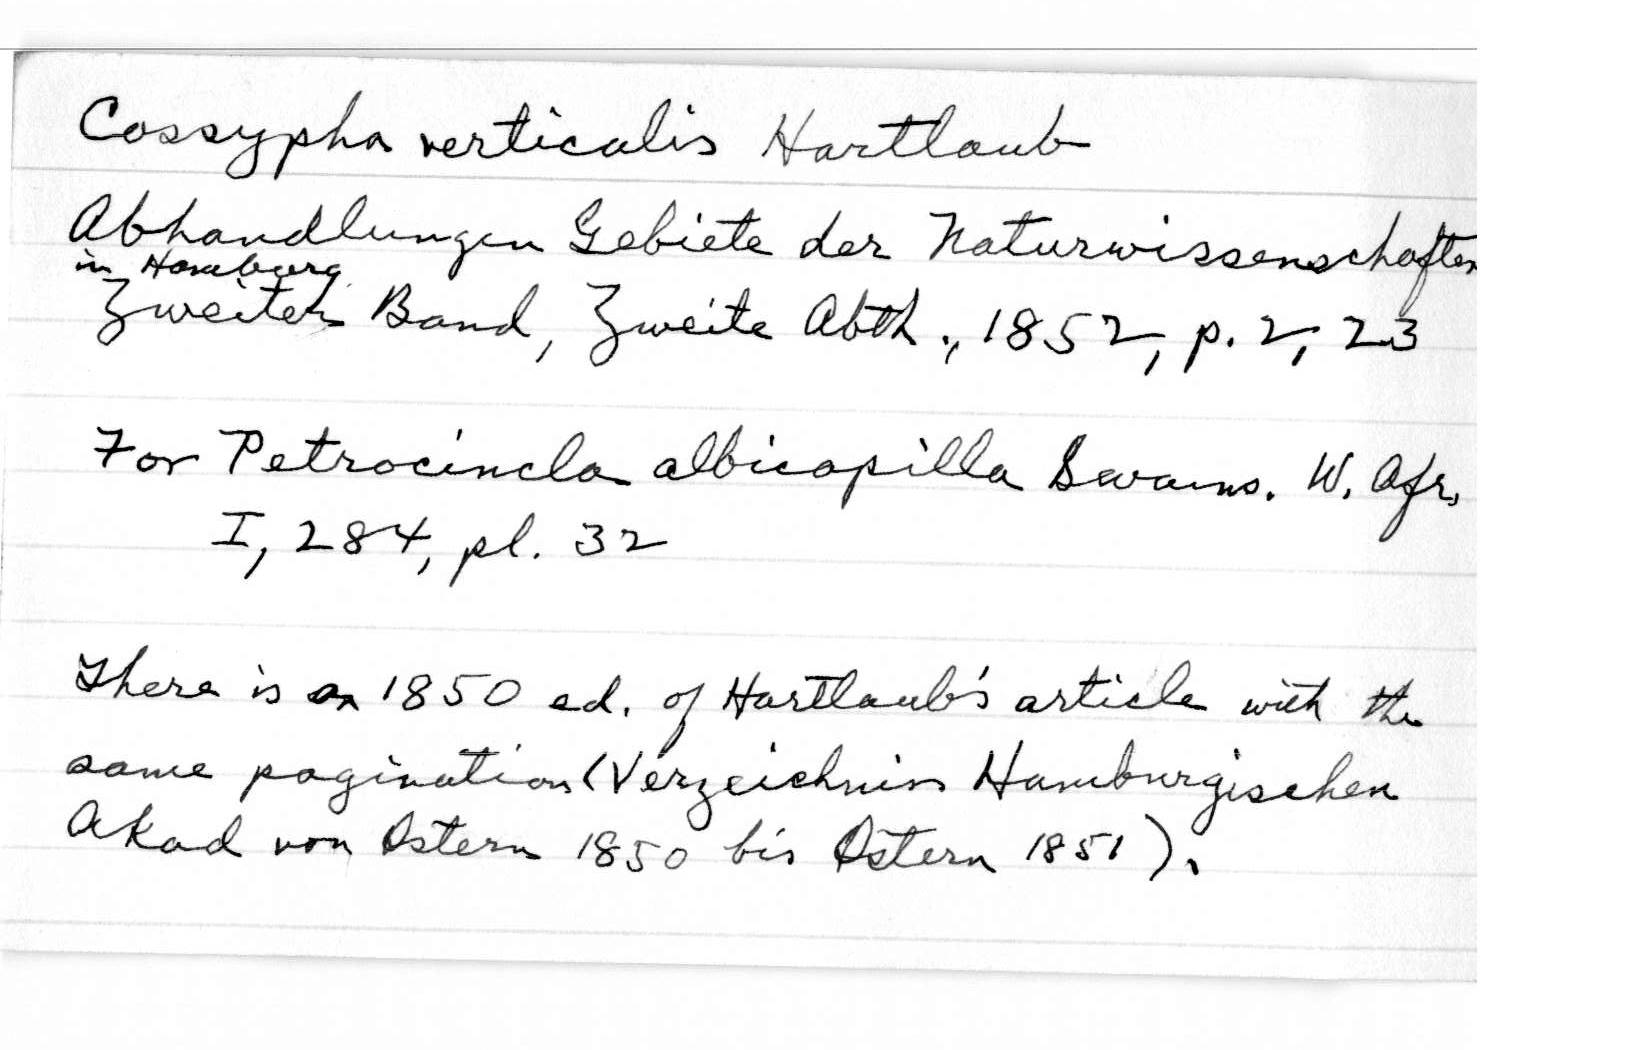 Cossypha verticalis Hartlaub
Abhandlungen Gebiete der Naturwissenschaften
in Hamburg
Zweiter Band, Zweite Abth., 1852, p. 2, 23
For Petrocincla albicapilla Swains. W. Afr,
I, 284, pl. 32
There is an 1850 ed. of Hartlaub's article with the
same pagination (Verzeichnis Hamburgischen
Akad von Ostern 1850 bis Ostern 1851).